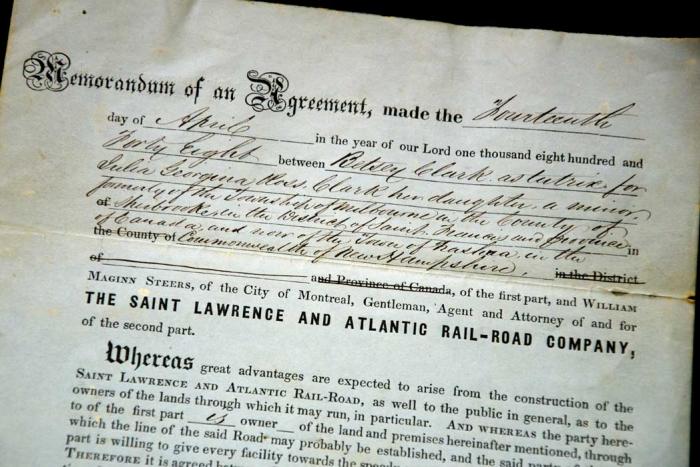 Memorandum of an Agreement, made the Fourteenth
day of April in the year of our Lord one thousand eight hundred and
Forty Eight between Betsey Clark as tutrix for
Julia Georgina Ross Clark her daughter, a minor,
formerly of the Township of Melbourne in the County of
of Sherbrooke, in the District of Saint Francis and Province in
of Canada, and now of the Town of Nashua, in the
the County of Commonwealth of New Hampshire, in the District
of and Province of Canada, of the first part, and William
Maginn Steers, of the City of Montreal, Gentleman, Agent and Attorney of and for
THE SAINT LAWRENCE AND ATLANTIC RAIL-ROAD COMPANY,
of the second part.
Whereas great advantages are expected to arise from the construction of the
Saint Lawrence and Atlantic Rail-Road, as well to the public in general, as to the
owners of the lands through which it may run, in particular. And whereas the party here-
to of the first part is owner of the land and premises hereinafter mentioned, through
which the line of the said Road may probably be established, and the said
part is willing to give every facility towards the
Therefore it is agreed